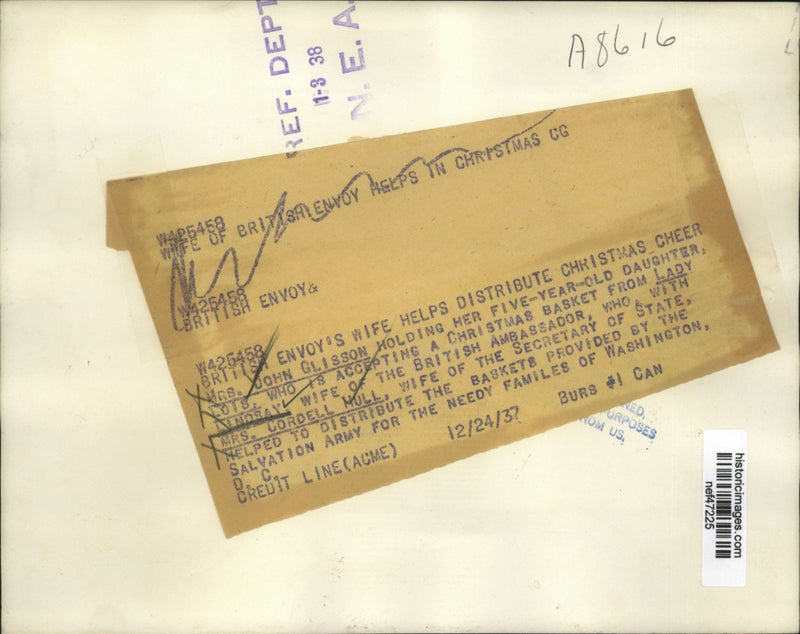 REF. DEPT
1-3 38
N. E. A.
A8616
W425458
WIFE OF BRITISH ENVOY HELPS IN CHRISTMAS CG
W425458
BRITISH ENVOY&
W425458
BRITISH ENVOY'S WIFE HELPS DISTRIBUTE CHRISTMAS CHEER
MRS. JOHN GLISSON HOLDING HER FIVE-YEAR-OLD DAUGHTER,
LOIS, WHO IS ACCEPTING A CHRISTMAS BASKET FROM LADY
LINDSAY, WIFE OF THE BRITISH AMBASSADOR, WHO, WITH
MRS. CORDELL HULL, WIFE OF THE SECRETARY OF STATE,
HELPED TO DISTRIBUTE THE BASKETS PROVIDED BY THE
SALVATION ARMY FOR THE NEEDY FAMILES OF WASHINGTON,
D. C.
CREDIT LINE(ACME) 12/24/37 BURS #1 CAN
PURPOSES
FROM US.
historicimages.com
nef47225